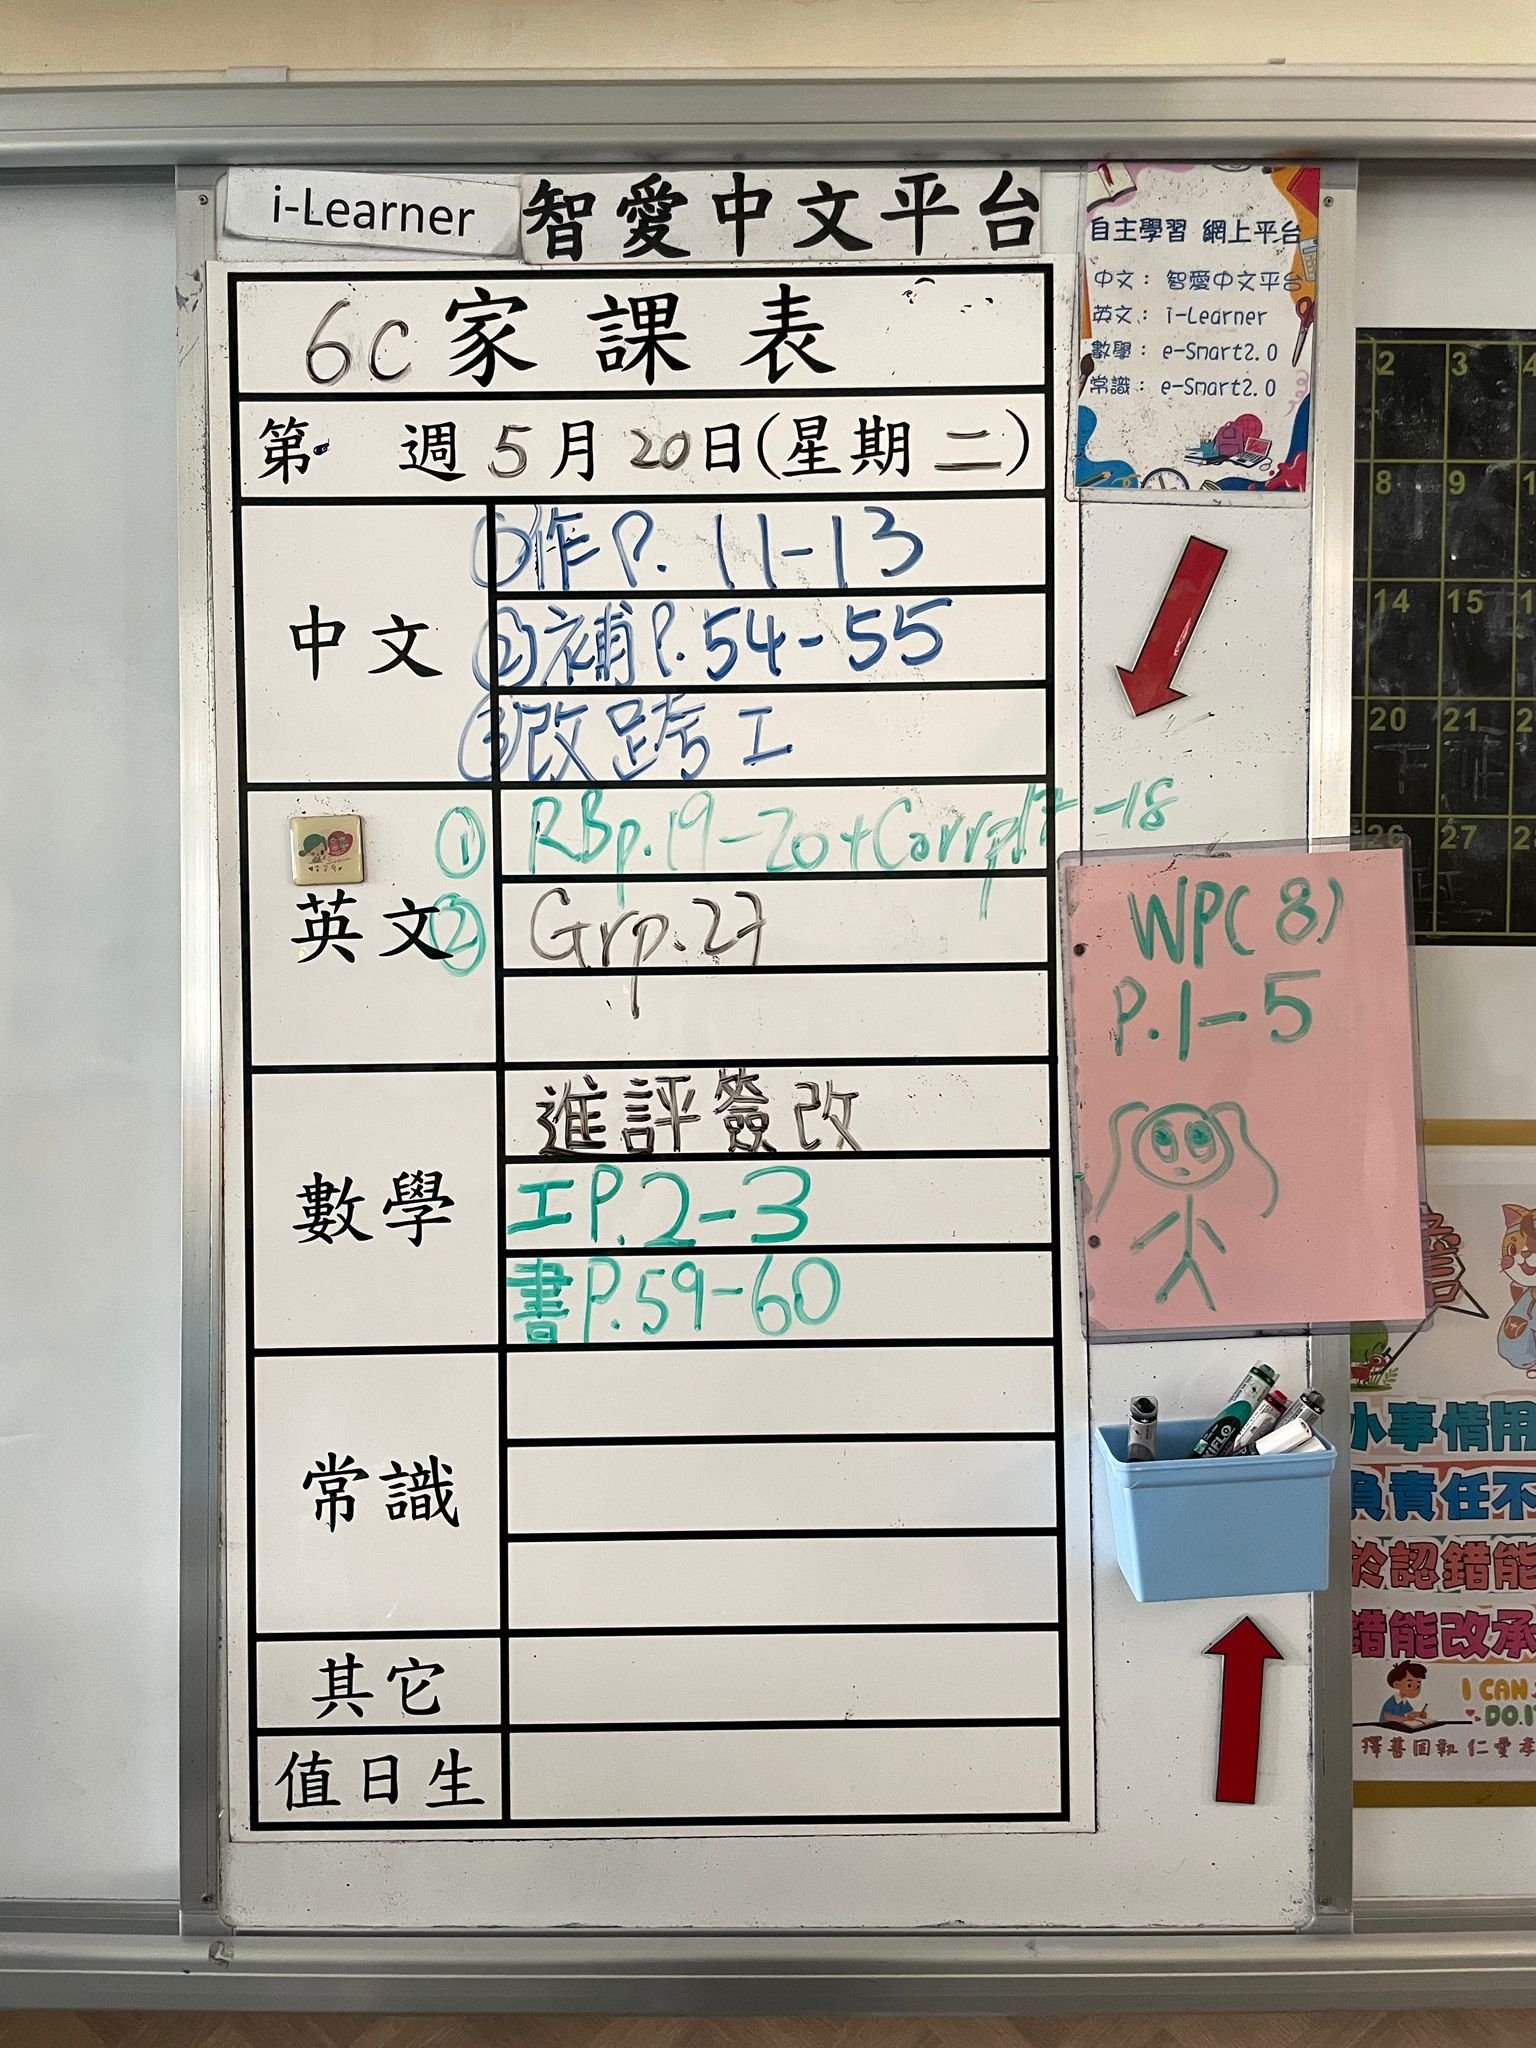 i-Learner 智愛中文平台
自主學習 網上平台
中文： 智愛中文平台
英文： i-Learner
數學： e-Smart2.0
常識： e-Smart2.0
6C 家課表
第 週 5月20日(星期二)
中文
①作P. 11-13
②補P.54-55
③改跨工
英文
① RBp.19-20+Corrp17-18
② Grp.27
WP(8)
P.1-5
數學
進評簽改
工P.2-3
書P.59-60
常識
其它
值日生
2 3 4
8 9
14 15
20 21
26 27
小事情用
負責任不
於認錯能
錯能改承
I CAN
DO IT
擇善固執 仁愛